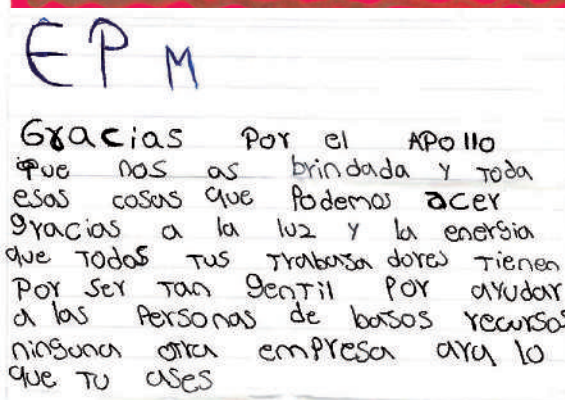 EPM
Gracias por el APollo
que nos as brindada y toda
esas cosas que Podemos acer
gracias a la luz y la energia
que Todos Tus Trabasa dores Tienen
Por ser Tan genTil por ayudar
a las Personas de basos recursos
ninguna otra empresa ara lo
que Tu ases